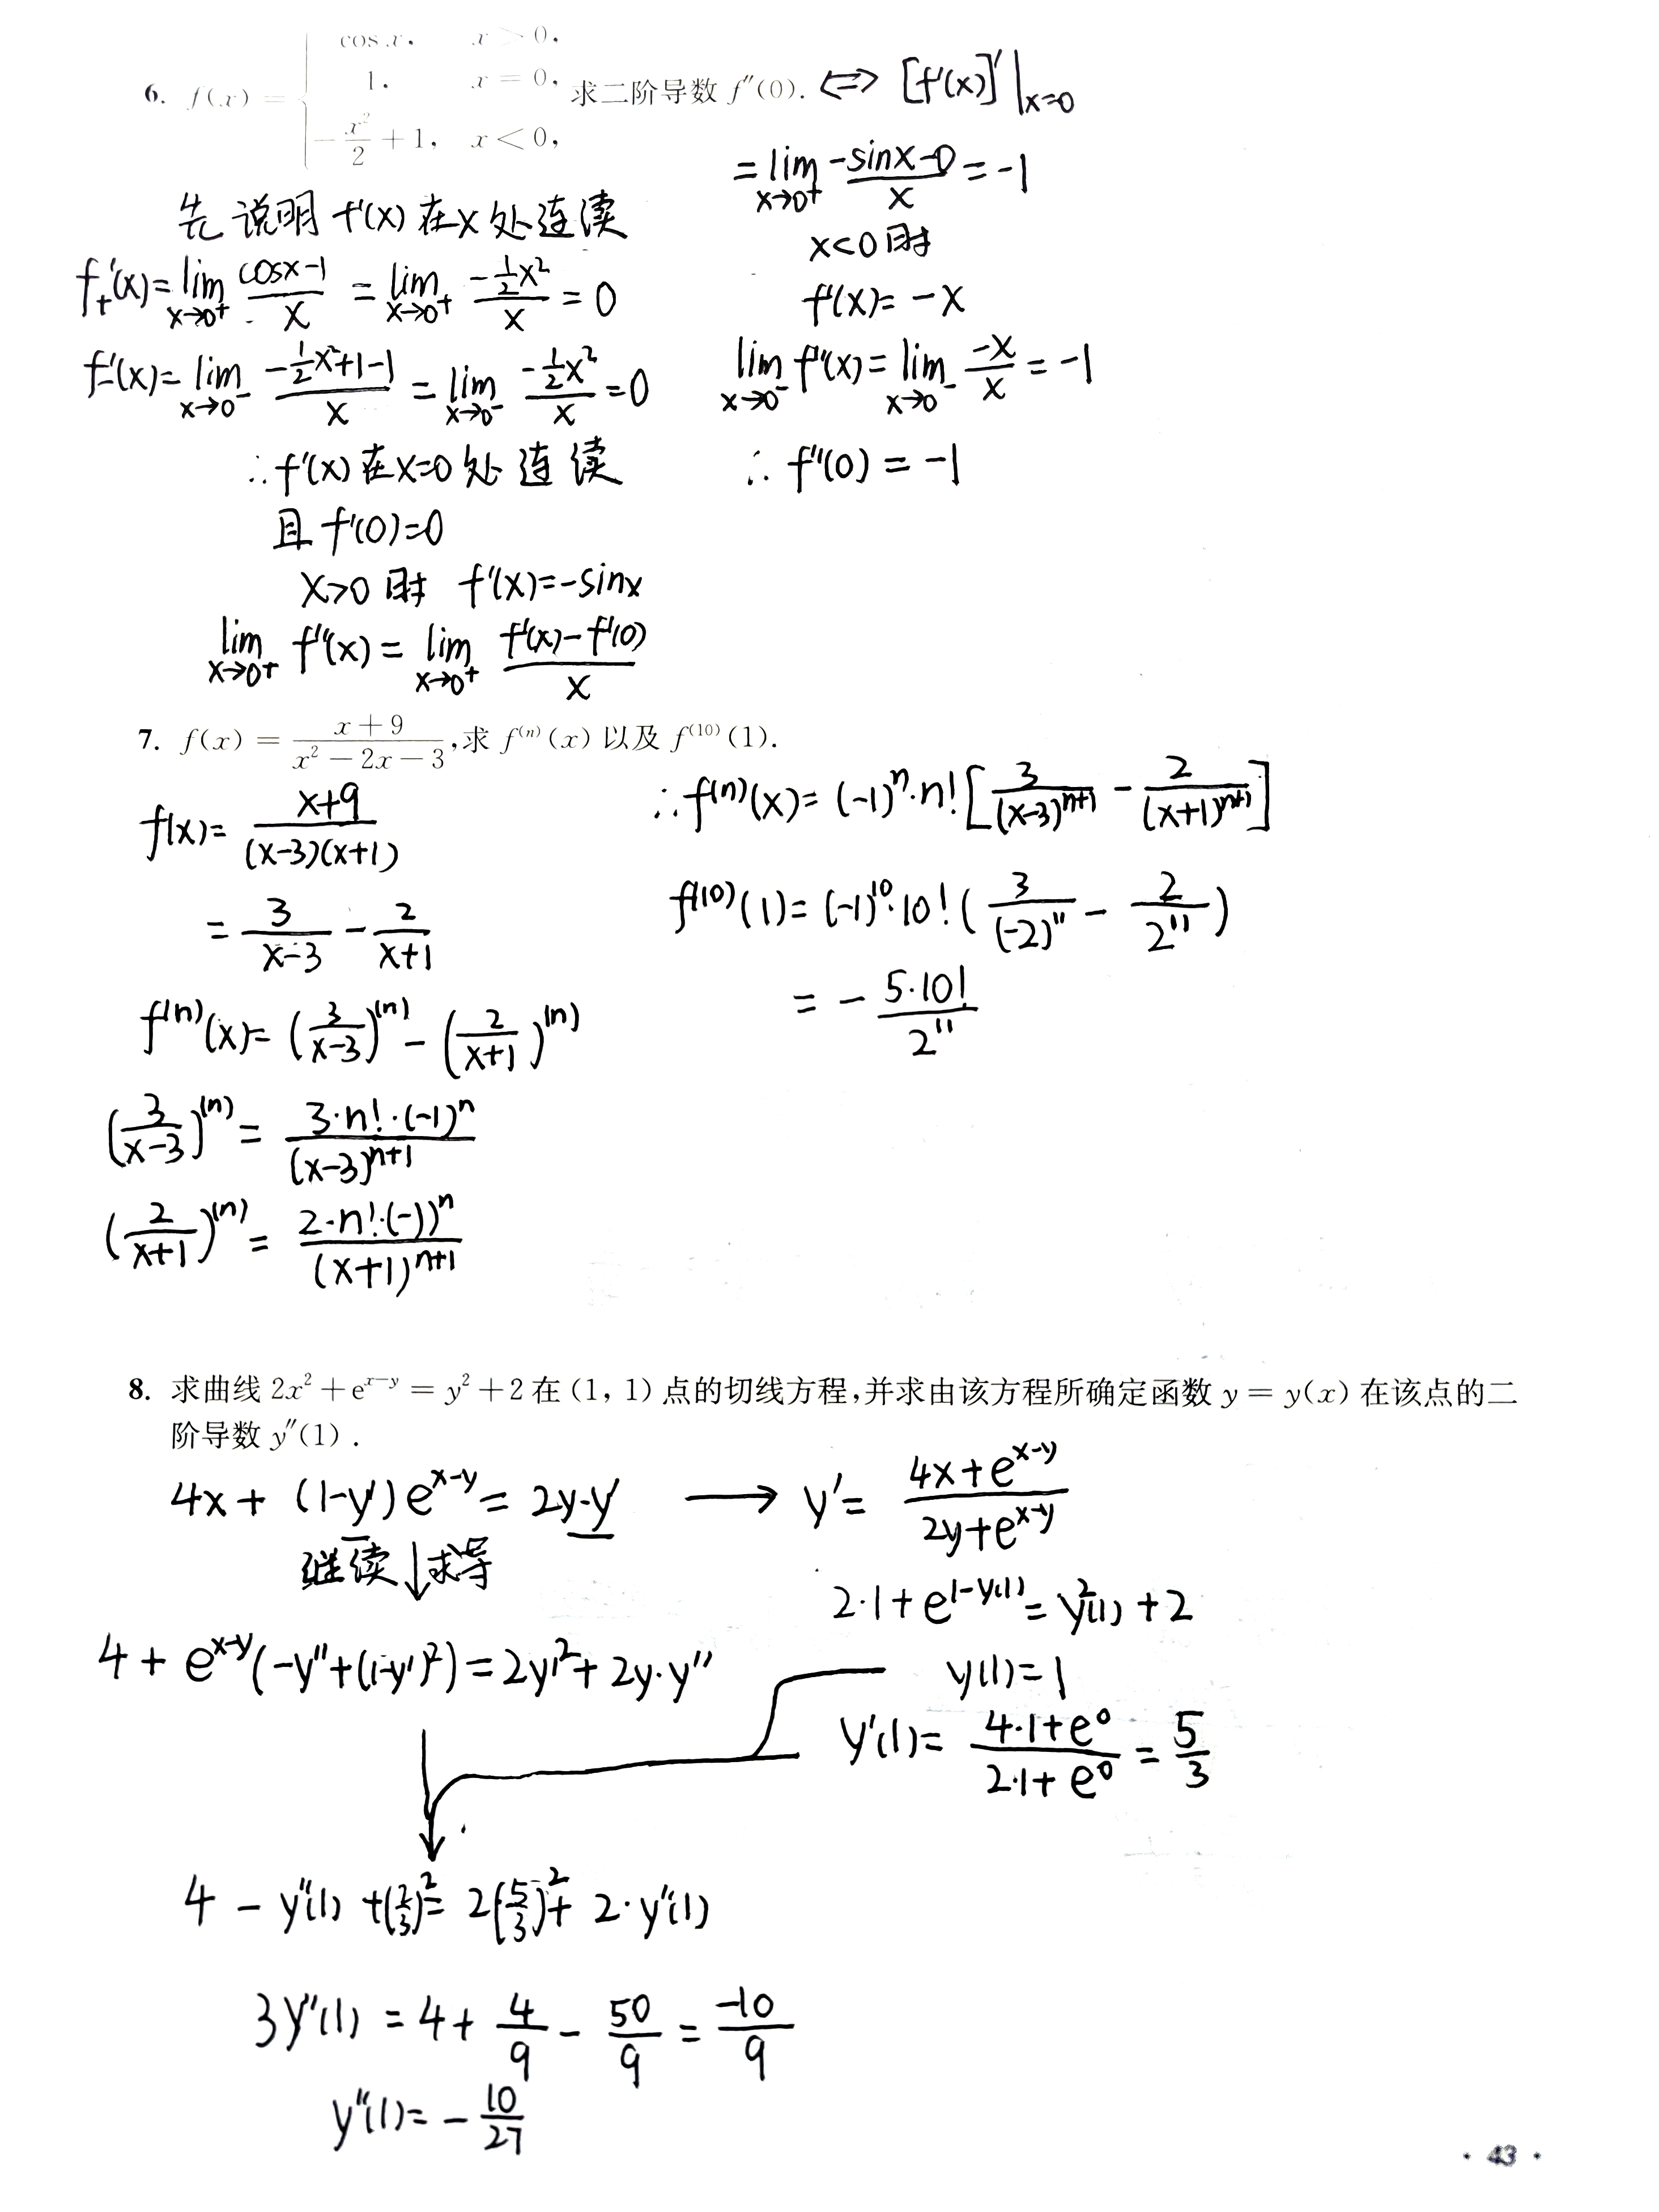 6. f(x) = { cos x, x > 0,
1, x = 0,
-x²/2 + 1, x < 0,
求二阶导数 f″(0). ⟺ [f'(x)]'|x=0
先说明 f'(x) 在 x 处连续
f₊'(x) = lim x→0⁺ (cosx-1)/x = lim x→0⁺ (-½x²)/x = 0
f₋'(x) = lim x→0⁻ (-½x²+1-1)/x = lim x→0⁻ (-½x²)/x = 0
∴ f'(x) 在 x=0 处连续
且 f'(0)=0
x>0 时 f'(x)=-sinx
lim x→0⁺ f''(x) = lim x→0⁺ (f'(x)-f'(0))/x
= lim x→0⁺ (-sinx-0)/x = -1
x<0 时
f'(x)= -x
lim x→0⁻ f''(x) = lim x→0⁻ (-x)/x = -1
∴ f''(0) = -1
7. f(x) = (x+9)/(x²-2x-3), 求 f⁽ⁿ⁾(x) 以及 f⁽¹⁰⁾(1).
f(x) = (x+9)/((x-3)(x+1))
= 3/(x-3) - 2/(x+1)
f⁽ⁿ⁾(x) = (3/(x-3))⁽ⁿ⁾ - (2/(x+1))⁽ⁿ⁾
(3/(x-3))⁽ⁿ⁾ = (3·n!·(-1)ⁿ)/(x-3)ⁿ⁺¹
(2/(x+1))⁽ⁿ⁾ = (2·n!·(-1)ⁿ)/(x+1)ⁿ⁺¹
∴ f⁽ⁿ⁾(x) = (-1)ⁿ·n! [3/(x-3)ⁿ⁺¹ - 2/(x+1)ⁿ⁺¹]
f⁽¹⁰⁾(1) = (-1)¹⁰·10! (3/(-2)¹¹ - 2/2¹¹)
= - 5·10!/2¹¹
8. 求曲线 2x² + eˣ⁻ʸ = y² + 2 在 (1, 1) 点的切线方程,并求由该方程所确定函数 y = y(x) 在该点的二
阶导数 y″(1) .
4x + (1-y')eˣ⁻ʸ = 2y·y' ⟶ y' = (4x+eˣ⁻ʸ)/(2y+eˣ⁻ʸ)
继续 ↓ 求导
2·1 + e^(1-y(1)) = y²(1) + 2
4 + eˣ⁻ʸ(-y''+(1-y')²) = 2y'² + 2y·y''
y(1)=1
y'(1) = (4·1+e⁰)/(2·1+e⁰) = 5/3
4 - y''(1) + (2/3)² = 2(5/3)² + 2·y''(1)
3y''(1) = 4 + 4/9 - 50/9 = -10/9
y''(1) = -10/27
· 43 ·